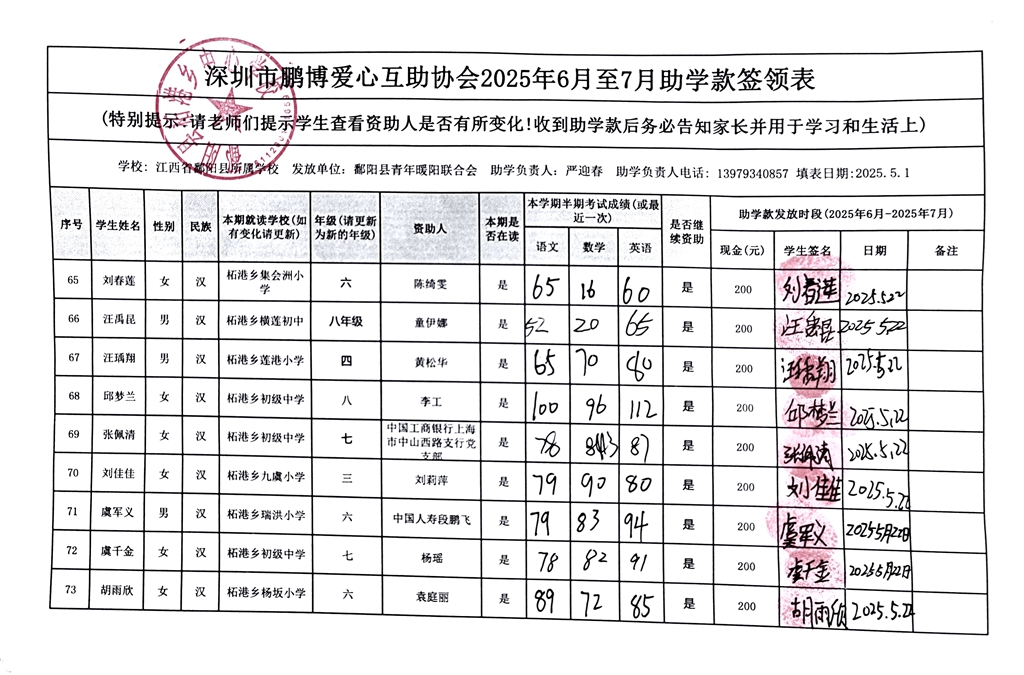 深圳市鹏博爱心互助协会2025年6月至7月助学款签领表
(特别提示:请老师们提示学生查看资助人是否有所变化!收到助学款后务必告知家长并用于学习和生活上)
学校: 江西省鄱阳县所属学校 发放单位: 鄱阳县青年暖阳联合会 助学负责人: 严迎春 助学负责人电话: 13979340857 填表日期:2025.5.1
序号 学生姓名 性别 民族 本期就读学校(如有变化请更新) 年级(请更新为新的年级) 资助人 本期是否在读 本学半期考试成绩(或最近一次) 是否继续资助 助学款发放时段(2025年6月-2025年7月)
语文 数学 英语 现金(元) 学生签名 日期 备注
65 刘春莲 女 汉 柘港乡集会洲小学 六 陈绮雯 是 65 16 60 是 200 刘春莲 2025.5.22
66 汪禹昆 男 汉 柘港乡横莲初中 八年级 童伊娜 是 52 20 65 是 200 汪禹昆 2025.5.22
67 汪瑀翔 男 汉 柘港乡莲港小学 四 黄松华 是 65 70 80 是 200 汪瑀翔 2025.5.22
68 邱梦兰 女 汉 柘港乡初级中学 八 李工 是 100 96 112 是 200 邱梦兰 2025.5.22
69 张佩清 女 汉 柘港乡初级中学 七 中国工商银行上海市中山西路支行党支部 是 78 87 是 200 张佩清 2025.5.22
70 刘佳佳 女 汉 柘港乡九虞小学 三 刘莉萍 是 79 90 80 是 200 刘佳佳 2025.5.22
71 虞军义 男 汉 柘港乡瑞洪小学 六 中国人寿段鹏飞 是 79 83 94 是 200 虞军义 2025年5月22日
72 虞千金 女 汉 柘港乡初级中学 七 杨瑶 是 78 82 91 是 200 虞千金 2025年5月22日
73 胡雨欣 女 汉 柘港乡杨坂小学 六 袁庭丽 是 89 72 85 是 200 胡雨欣 2025.5.22